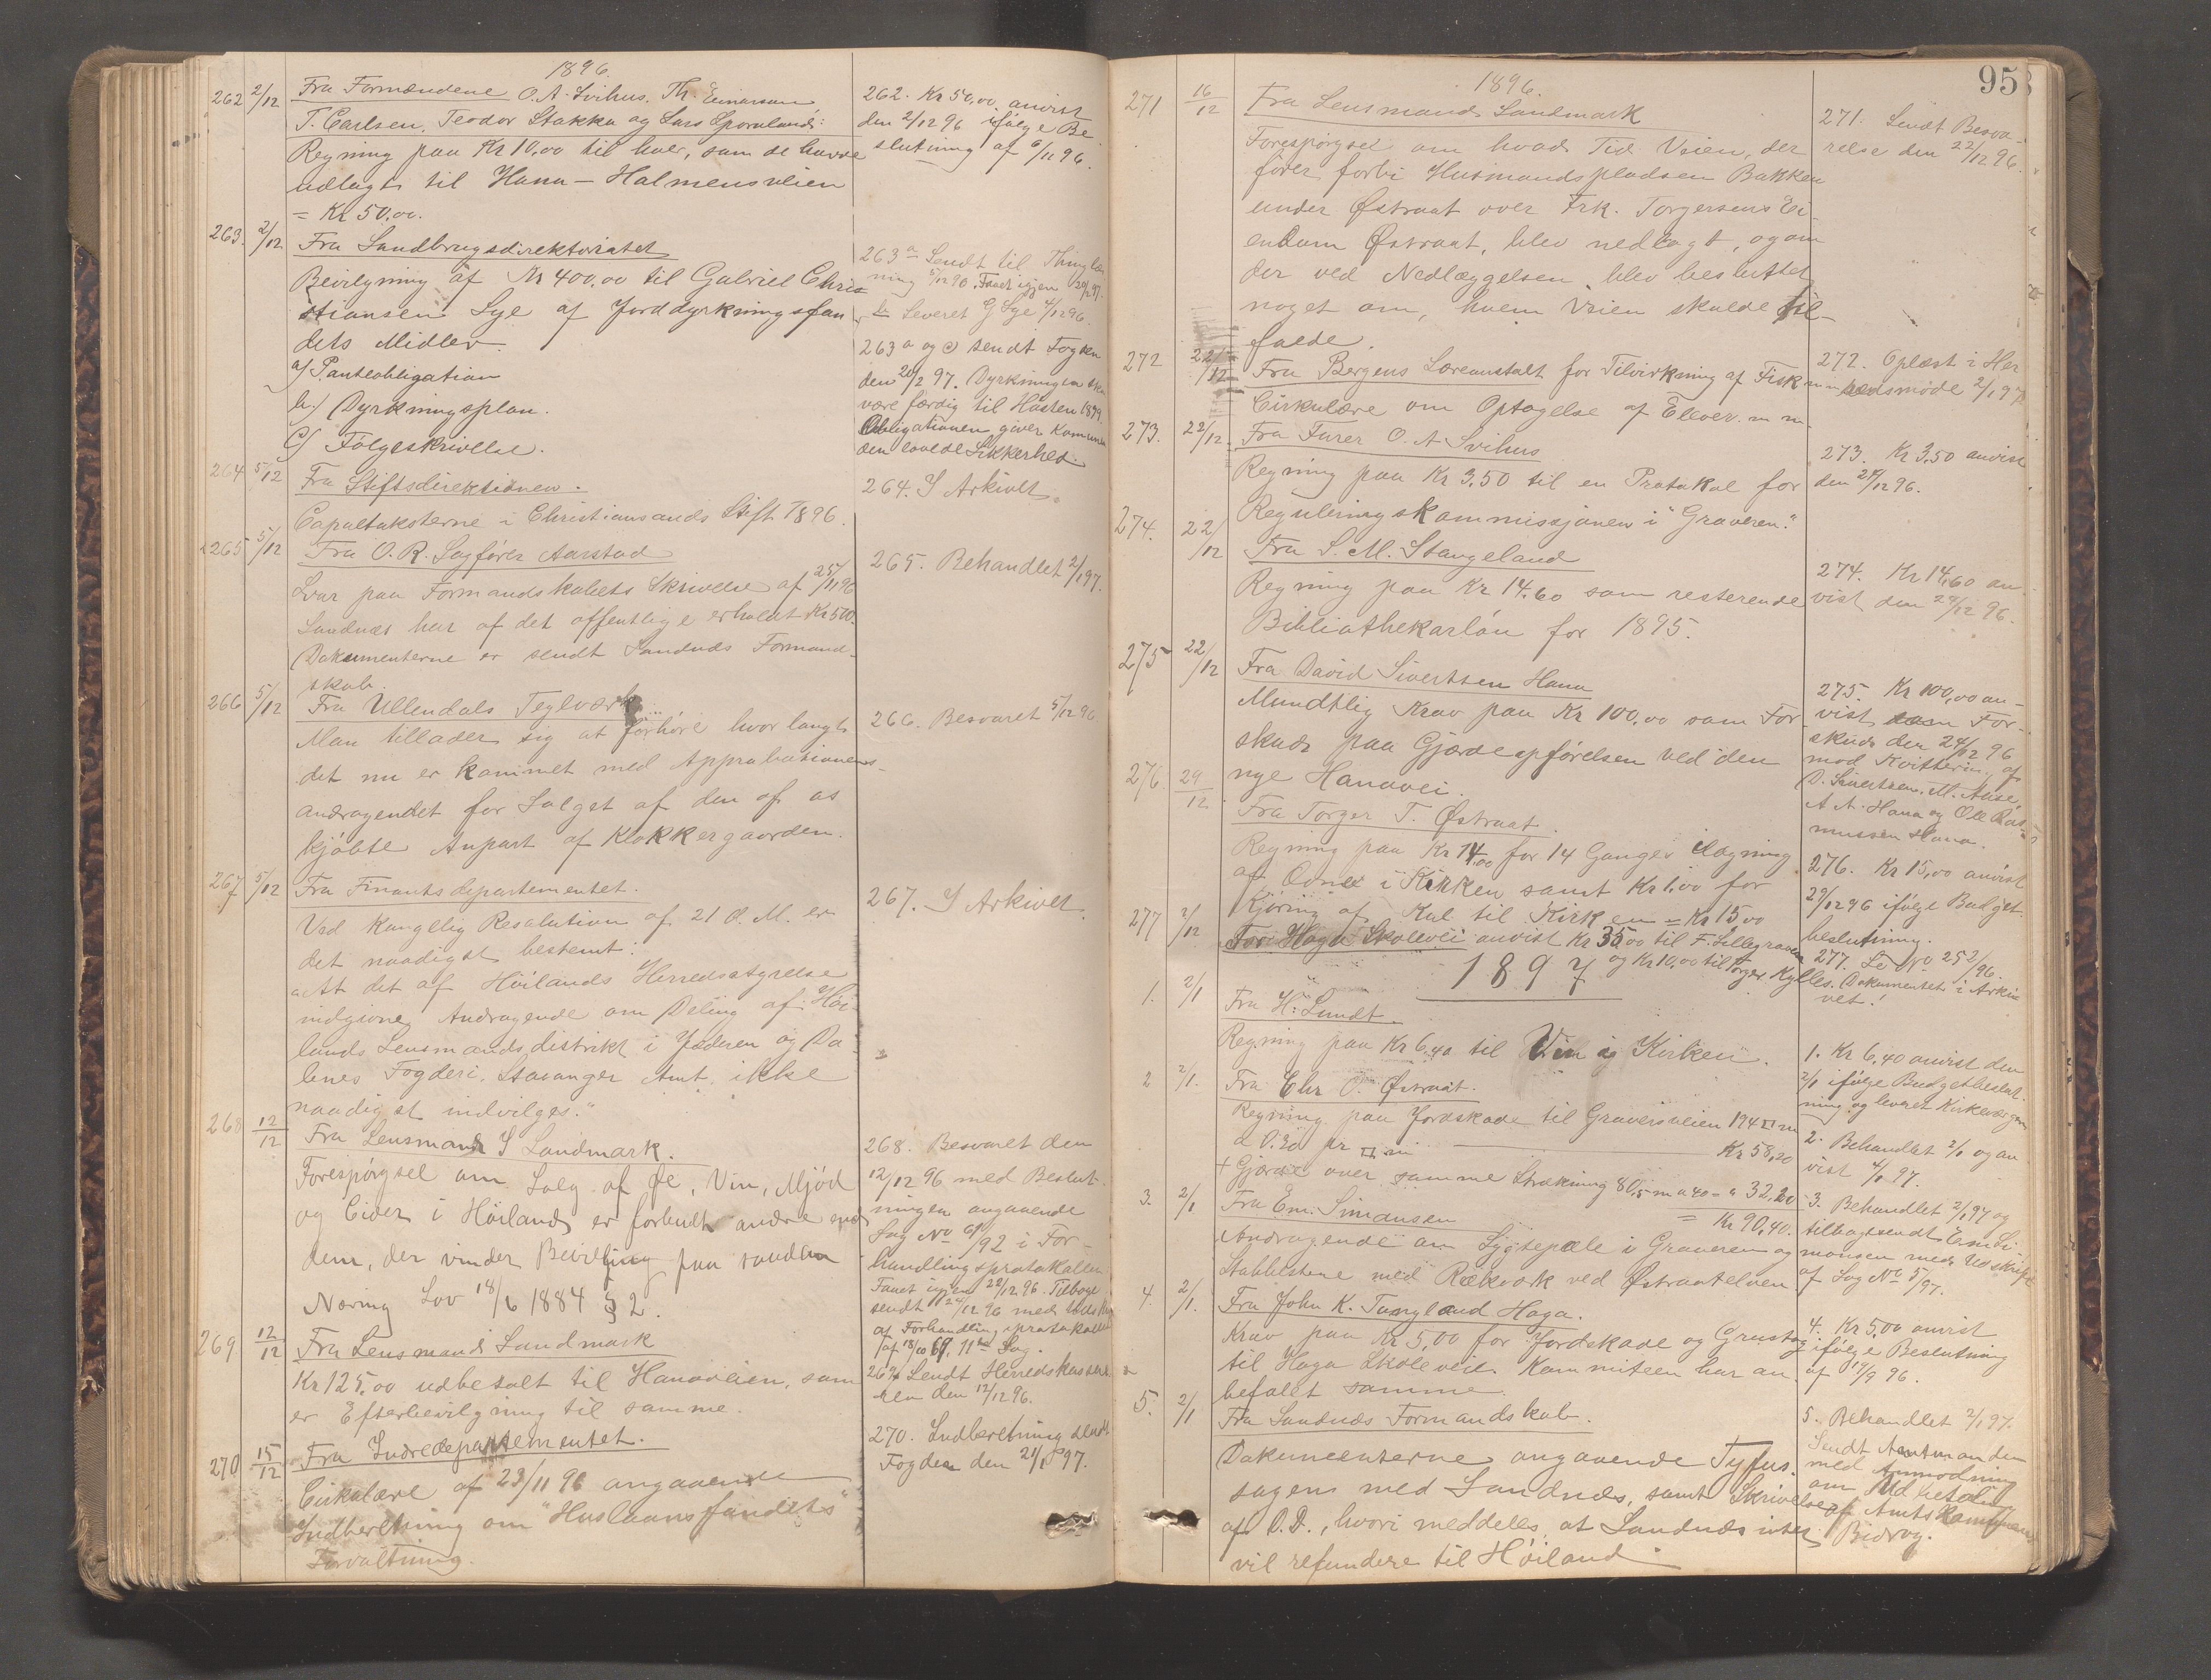 1896.
262 2/12 Fra Formændene O. A. Svihus, Th. Einarsen
T. Carlsen, Teodor Stokka og Lars Sporaland:
Regning paa Kr 10,00 til hver, som de havde
udlagt til Hana - Holmensveien
= Kr 50,00.
262. Kr 50,00 anvist
den 2/12 96 ifølge Be
slutning af 6/11 96.
263. 2/12 Fra Landbrugsdirektoratet
Bevilgning af Kr 400,00 til Gabriel Chri
stiansen Lye af Jorddyrkningsfon
dets Midler.
a) Panteobligation
b.) Dyrkningsplan.
C) Følgeskrivelse.
263 a Sendt til Thinglæs
ning 5/12 90. Faaet igjen 20/1 97.
b Leveret G Lye 4/12 96.
263 a og c) sendt Fogden
den 20/2 97. Dyrkningen skal
være færdig til Høsten 1899
Obligationen giver Kommunen
den lovede Sikkerhed.
264 5/12 Fra Stiftsdirektionen.
Capitelstaksterne i Christiansands Stift 1896.
264. I Arkivet.
265 5/12 Fra O. R. Sagfører Aarstad
Svar paa Formandskabets Skrivelse af 25/11 96
Sandnæs har af det offentlige erholdt Kr 500.
Dokumenterne er sendt Sandnæs Formand-
skab.
265. Behandlet 2/1 97.
266 5/12 Fra Ullendals Teglværk
Man tillader sig at forhøre hvor langt
det nu er kommet med Approbations-
andragendet for Salget af den af os
kjøbte Anpart af Klokkergaarden.
266. Besvaret 5/12 96
267 5/12 Fra Finantsdepartementet.
Ved kongelig Resolution af 21 d. M. er
det naadigst bestemt:
"At det af Høilands Herredsstyrelse
indgivne Andragende om Deling af Høi-
lands Lensmandsdistrikt i Jæderen og Da-
lenes Fogderi, Stavanger Amt, ikke
naadigst indvilges."
267. I Arkivet.
268 12/12 Fra Lensmand S Landmark.
Forespørgsel om Salg af Øl, Vin, Mjød
og Cider i Høiland er forbudt andre end
dem, der vinder Bevilling paa saadan
Næring Lov 18/6 1884 § 2.
268. Besvaret den
12/12 96 med Beslut-
ningen angaaende
Sag No 61/92 i For-
handlingsprotokollen
Faaet igjen 22/12 96. Tilbage
sendt 24/12 96 med Udskrift
af Forhandlingsprotokollen
af 18/10 67. 11te Sag.
269 12/12 Fra Lensmand Landmark
Kr 125,00 udbetalt til Hanaveien, som
er Efterbevilgning til samme.
269 Sendt Herredskasse
ren den 12/12 96.
270 15/12 Fra Indredepartementet.
Cirkulære af 23/11 96 angaaende
Indberetning om "Huslaansfondets"
Forvaltning.
270. Indberetning sendt
Fogden den 21/1 97.
958
1896.
271 16/12 Fra Lensmand Landmark
Forespørgsel om hvad Tid Veien, der
fører forbi Husmandspladsen Bakken
under Østraat over Frk. Torgersens Ei-
endom Østraat, blev nedlagt, og om
der ved Nedlæggelsen blev besluttet
noget om, hvem Veien skulde til-
falde.
271. Sendt Besva-
relse den 22/12 96.
272 22/12 Fra Bergens Læreanstalt for Tilvirkning af Fisk m. m
Cirkulære om Optagelse af Elever m m.
272. Oplæst i Her
redsmøde 2/1 97
273. 22/12. Fra Fører O. A Svihus
Regning paa Kr 3,50 til en Protokol for
Reguleringskommissjonen i "Graveren."
273. Kr 3,50 anvist
den 24/12 96.
274. 22/12 Fra S. M. Stangeland
Regning paa Kr 14,60 som resterende
Bibliothekarløn for 1895.
274. Kr 14,60 an-
vist den 24/12 96.
275 22/12 Fra David Sivertsen Hana
Mundtlig Krav paa Kr 100,00 som For
skud paa Gjærdeopførelsen ved den
nye Hanavei.
275. Kr 100,00 an-
vist som For-
skud den 24/12 96
mod Kvittering af
D. Sivertsen, M. Aase,
A A. Hana og Ole Ras-
mussen Hana.
276. 29/12. Fra Torger T. Østraat.
Regning paa Kr 14,00 for 14 Ganger ilægning
af Ovne i Kirken samt Kr 1,00 for
Kjøring af Kul til Kirken = Kr 15 00
276. Kr 15,00 anvist
29/12 96 ifølge Budget-
beslutning.
277 2/12 For Haga Skolevei anvist Kr 35,00 til F. Lillegraven
og Kr 10,00 til Torger Kylles.
277. Se No 252/96.
Dokumentet i Arki
vet!
1897
1. 2/1 Fra H. Lundt.
Regning paa Kr 6,40 til Vin i Kirken.
1. Kr 6,40 anvist den
2/1 ifølge Budgetbeslut-
ning og leveret Kirkeværgen
2 2/1. Fra Chr O. Østraat.
Regning paa Jordskade til Graversveien 194 □ m
a 0.30 pr □ m Kr 58,20
+ Gjærde over samme Strækning 80,5 m a 40 = a 32,20
= Kr 90,40.
2. Behandlet 2/1 og an
vist 4/1 97.
3. 2/1 Fra Em. Simonsen
Andragende om Lygtepæle i Graveren og
Stabbestene med Rækværk ved Østraatelven
3. Behandlet 2/1 97 og
tilbagesendt Em Si
monsen med Udskrift
af Sag No 5/97.
4. 2/1. Fra John K. Tungland Haga.
Krav paa Kr 5,00 for Jordskade og Grustag
til Haga Skoleveie. Kommiteen har an-
befalet samme.
4. Kr 5,00 anvist
ifølge Beslutning
af 17/9 96.
5. 2/1 Fra Sandnæs Formandskab.
Dokumenterne angaaende Tyfus-
sagen med Sandnæs, samt Skrivelse
af O.D., hvori meddeles, at Sandnæs intet
vil refundere til Høiland
5. Behandlet 2/1 97.
Sendt Amtmanden
med Anmodning
om Udbetaling
af Amtskommunens
Bidrag.